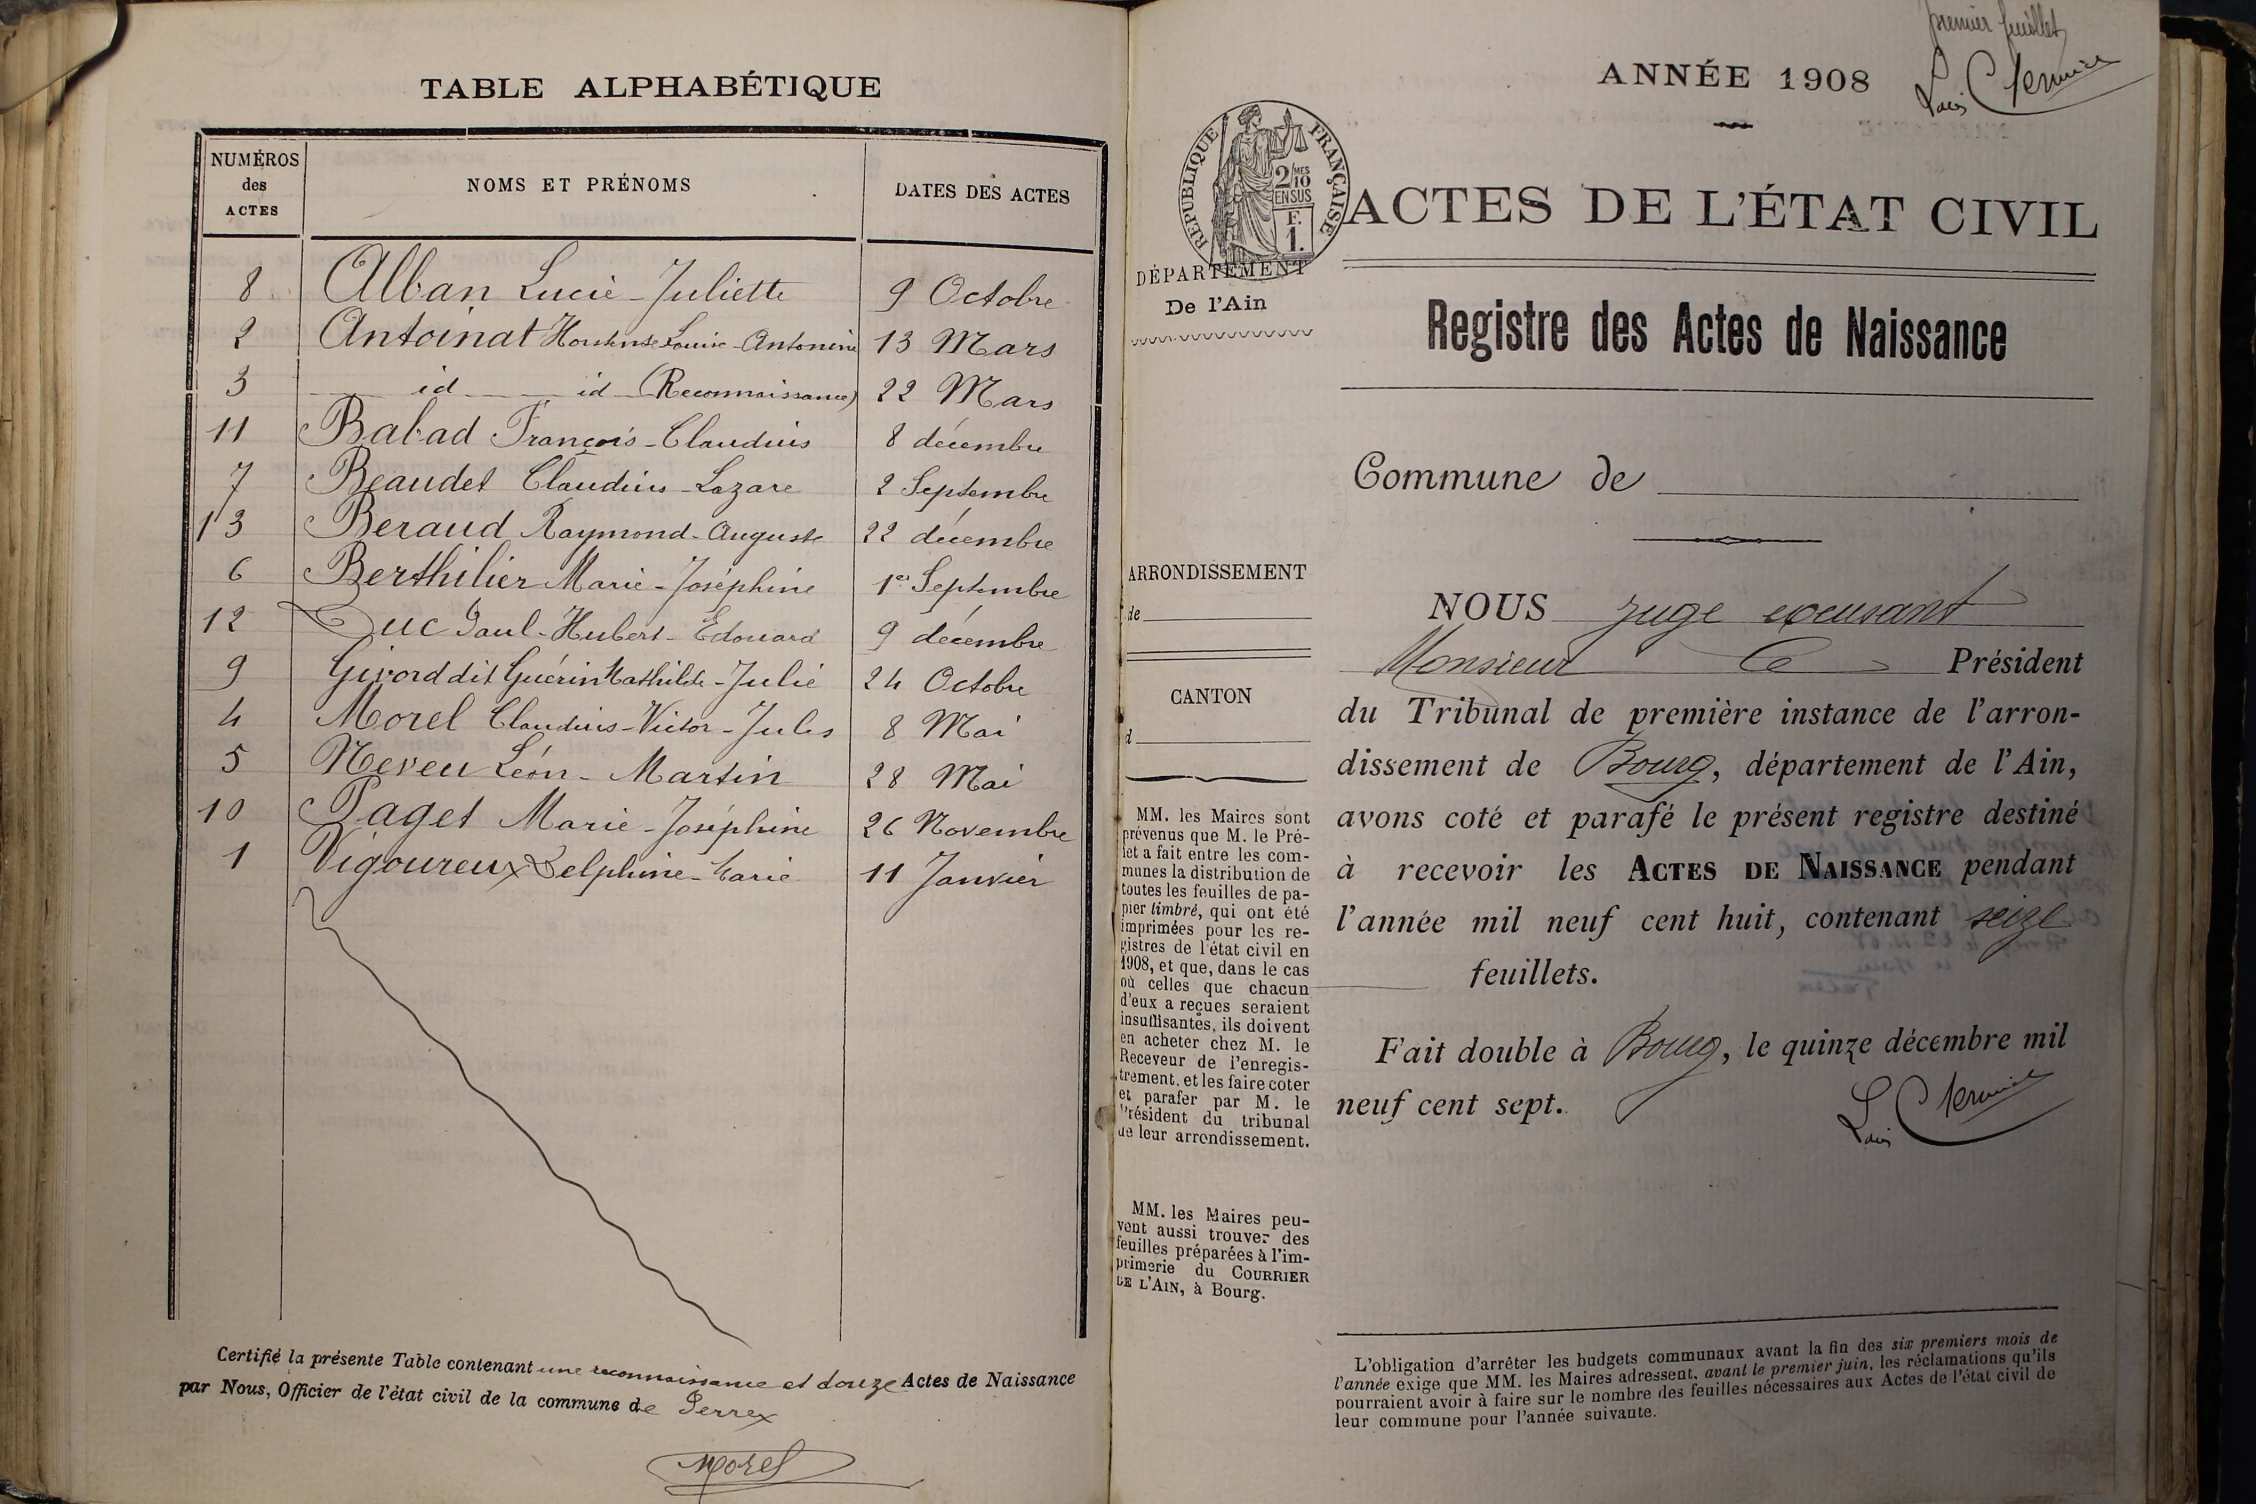 TABLE ALPHABÉTIQUE
NUMÉROS des ACTES | NOMS ET PRÉNOMS | DATES DES ACTES
8 Alban Lucie-Juliette 9 Octobre
2 Antoinat Hortense Louise-Antonine 13 Mars
3 id id (Reconnaissance) 22 Mars
11 Babad François-Claudius 8 décembre
7 Beaudet Claudius-Lazare 2 Septembre
13 Beraud Raymond-Auguste 22 décembre
6 Berthilier Marie-Joséphine 1er Septembre
12 Duc Paul-Hubert-Edouard 9 décembre
9 Givord dit Guérin Mathilde-Julie 24 Octobre
4 Morel Claudius-Victor-Jules 8 Mai
5 Neveu Léon-Martin 28 Mai
10 Paget Marie-Joséphine 26 Novembre
1 Vigoureux Delphine-Marie 11 Janvier
Certifié la présente Table contenant une reconnaissance et douze Actes de Naissance
par Nous, Officier de l'état civil de la commune de Perrex
Morel
premier feuillet
ANNÉE 1908
RÉPUBLIQUE FRANÇAISE
2/10MES
EN SUS
F.
1.
ACTES DE L'ÉTAT CIVIL
DÉPARTEMENT
De l'Ain
Registre des Actes de Naissance
Commune de
ARRONDISSEMENT
de
CANTON
d
MM. les Maires sont
prévenus que M. le Pré-
fet a fait entre les com-
munes la distribution de
toutes les feuilles de pa-
pier timbré, qui ont été
imprimées pour les re-
gistres de l'état civil en
1908, et que, dans le cas
où celles que chacun
d'eux a reçues seraient
insuffisantes, ils doivent
en acheter chez M. le
Receveur de l'enregis-
trement, et les faire coter
et parafer par M. le
Président du tribunal
de leur arrondissement.
MM. les Maires peu-
vent aussi trouver des
feuilles préparées à l'im-
primerie du COURRIER
DE L'AIN, à Bourg.
NOUS juge excusant
Monsieur le Président
du Tribunal de première instance de l'arron-
dissement de Bourg, département de l'Ain,
avons coté et parafé le présent registre destiné
à recevoir les ACTES DE NAISSANCE pendant
l'année mil neuf cent huit, contenant seize
feuillets.
Fait double à Bourg, le quinze décembre mil
neuf cent sept.
L'obligation d'arrêter les budgets communaux avant la fin des six premiers mois de
l'année exige que MM. les Maires adressent, avant le premier juin, les réclamations qu'ils
pourraient avoir à faire sur le nombre des feuilles nécessaires aux Actes de l'état civil de
leur commune pour l'année suivante.